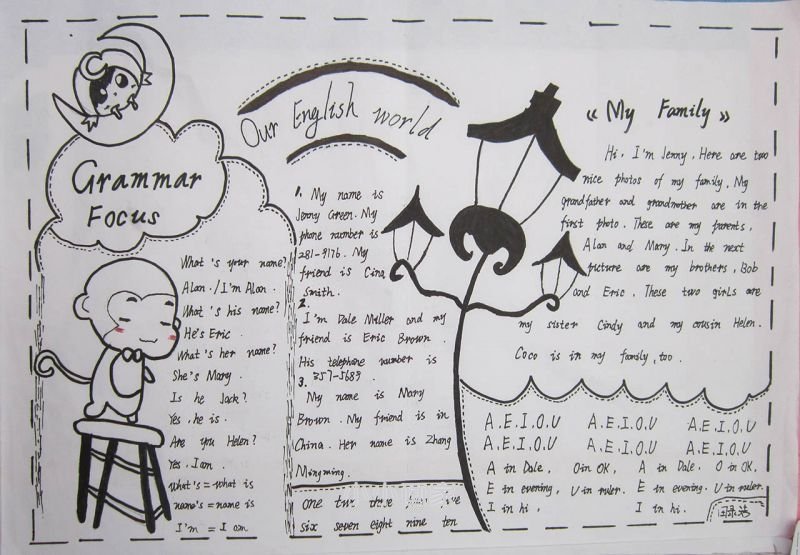 Grammar
Focus
What's your name?
Alan. / I'm Alan.
What's his name?
He's Eric.
What's her name?
She's Mary.
Is he Jack?
Yes, he is.
Are you Helen?
Yes, I am.
what's = what is
name's = name is
I'm = I am
Our English world
1. My name is
Jenny Green. My
phone number is
281-9176. My
friend is Gina
Smith.
2.
I'm Dale Miller and my
friend is Eric Brown.
His telephone number is
357-5689.
3.
My name is Mary
Brown. My friend is in
China. Her name is Zhang
Mingming.
one two three five
six seven eight nine ten
« My Family »
Hi, I'm Jenny. Here are two
nice photos of my family. My
grandfather and grandmother are in the
first photo. These are my parents,
Alan and Mary. In the next
picture are my brothers, Bob
and Eric. These two girls are
my sister Cindy and my cousin Helen.
Coco is in my family, too.
A.E.I.O.U A.E.I.O.U A.E.I.O.U
A.E.I.O.U A.E.I.O.U A.E.I.O.U
A in Dale. O in OK, A in Dale. O in OK,
E in evening, U in ruler. E in evening. U in ruler.
I in hi, I in hi.